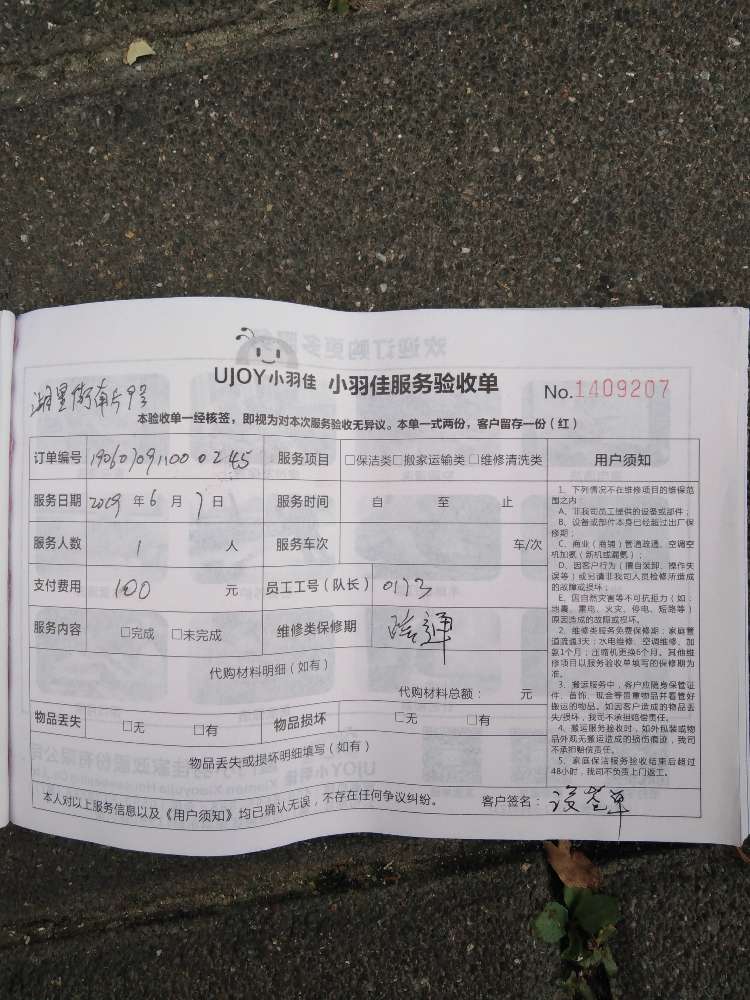 UJOY小羽佳 小羽佳服务验收单 No.1409207
本验收单一经核签，即视为对本次服务验收无异议。本单一式两份，客户留存一份（红）
订单编号 190607091100 0245 服务项目 □保洁类□搬家运输类□维修清洗类 用户须知
服务日期 2019 年 6 月 7 日 服务时间 自 至 止
服务人数 1 人 服务车次 车/次
支付费用 100 元 员工工号（队长） 0173
服务内容 □完成 □未完成 维修类保修期
代购材料明细（如有）
代购材料总额： 元
物品丢失 □无 □有 物品损坏 □无 □有
物品丢失或损坏明细填写（如有）
本人对以上服务信息以及《用户须知》均已确认无误，不存在任何争议纠纷。 客户签名：
1、下列情况不在维修项目的维保范
围之内：
A、非我司员工提供的设备或部件；
B、设备或部件本身已经超过出厂保
修期；
C、商业（商铺）管道疏通、空调空
机加氨（新机或漏氨）；
D、因客户行为（擅自装卸、操作失
误等）或另请非我司人员检修所造成
的故障或损坏；
E、因自然灾害等不可抗拒力（如：
地震、雷电、火灾、停电、短路等）
原因造成的故障或损坏。
2、维修类服务免费保修期：家庭管
道疏通3天；水电维修、空调维修、加
氨1个月；压缩机更换6个月。其他维
修项目以服务验收单填写的保修期为
准。
3、搬运服务中，客户应随身保管证
件、首饰、现金等贵重物品并看管好
搬运的物品。如因客户造成的物品丢
失/损坏，我司不承担赔偿责任。
4、搬运服务验收时，如外包装或物
品外观无搬运造成的损伤痕迹，我司
不承担赔偿责任。
5、家庭保洁服务验收结束后超过
48小时，我司不负责上门返工。